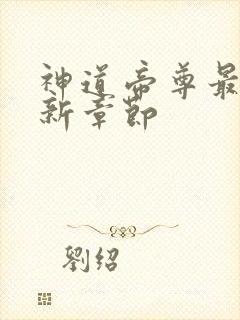 神道帝尊最
新章節
劉紹